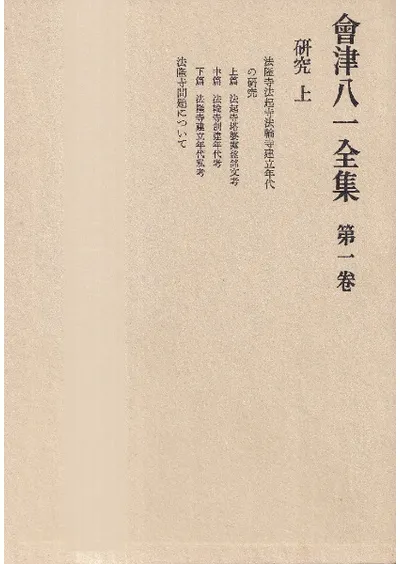 會津八一全集 第一卷
研究 上
法隆寺法起寺法輪寺建立年代
の研究
上篇 法起寺塔婆露盤銘文考
中篇 法輪寺創建年代考
下篇 法隆寺建立年代私考
法隆寺問題について